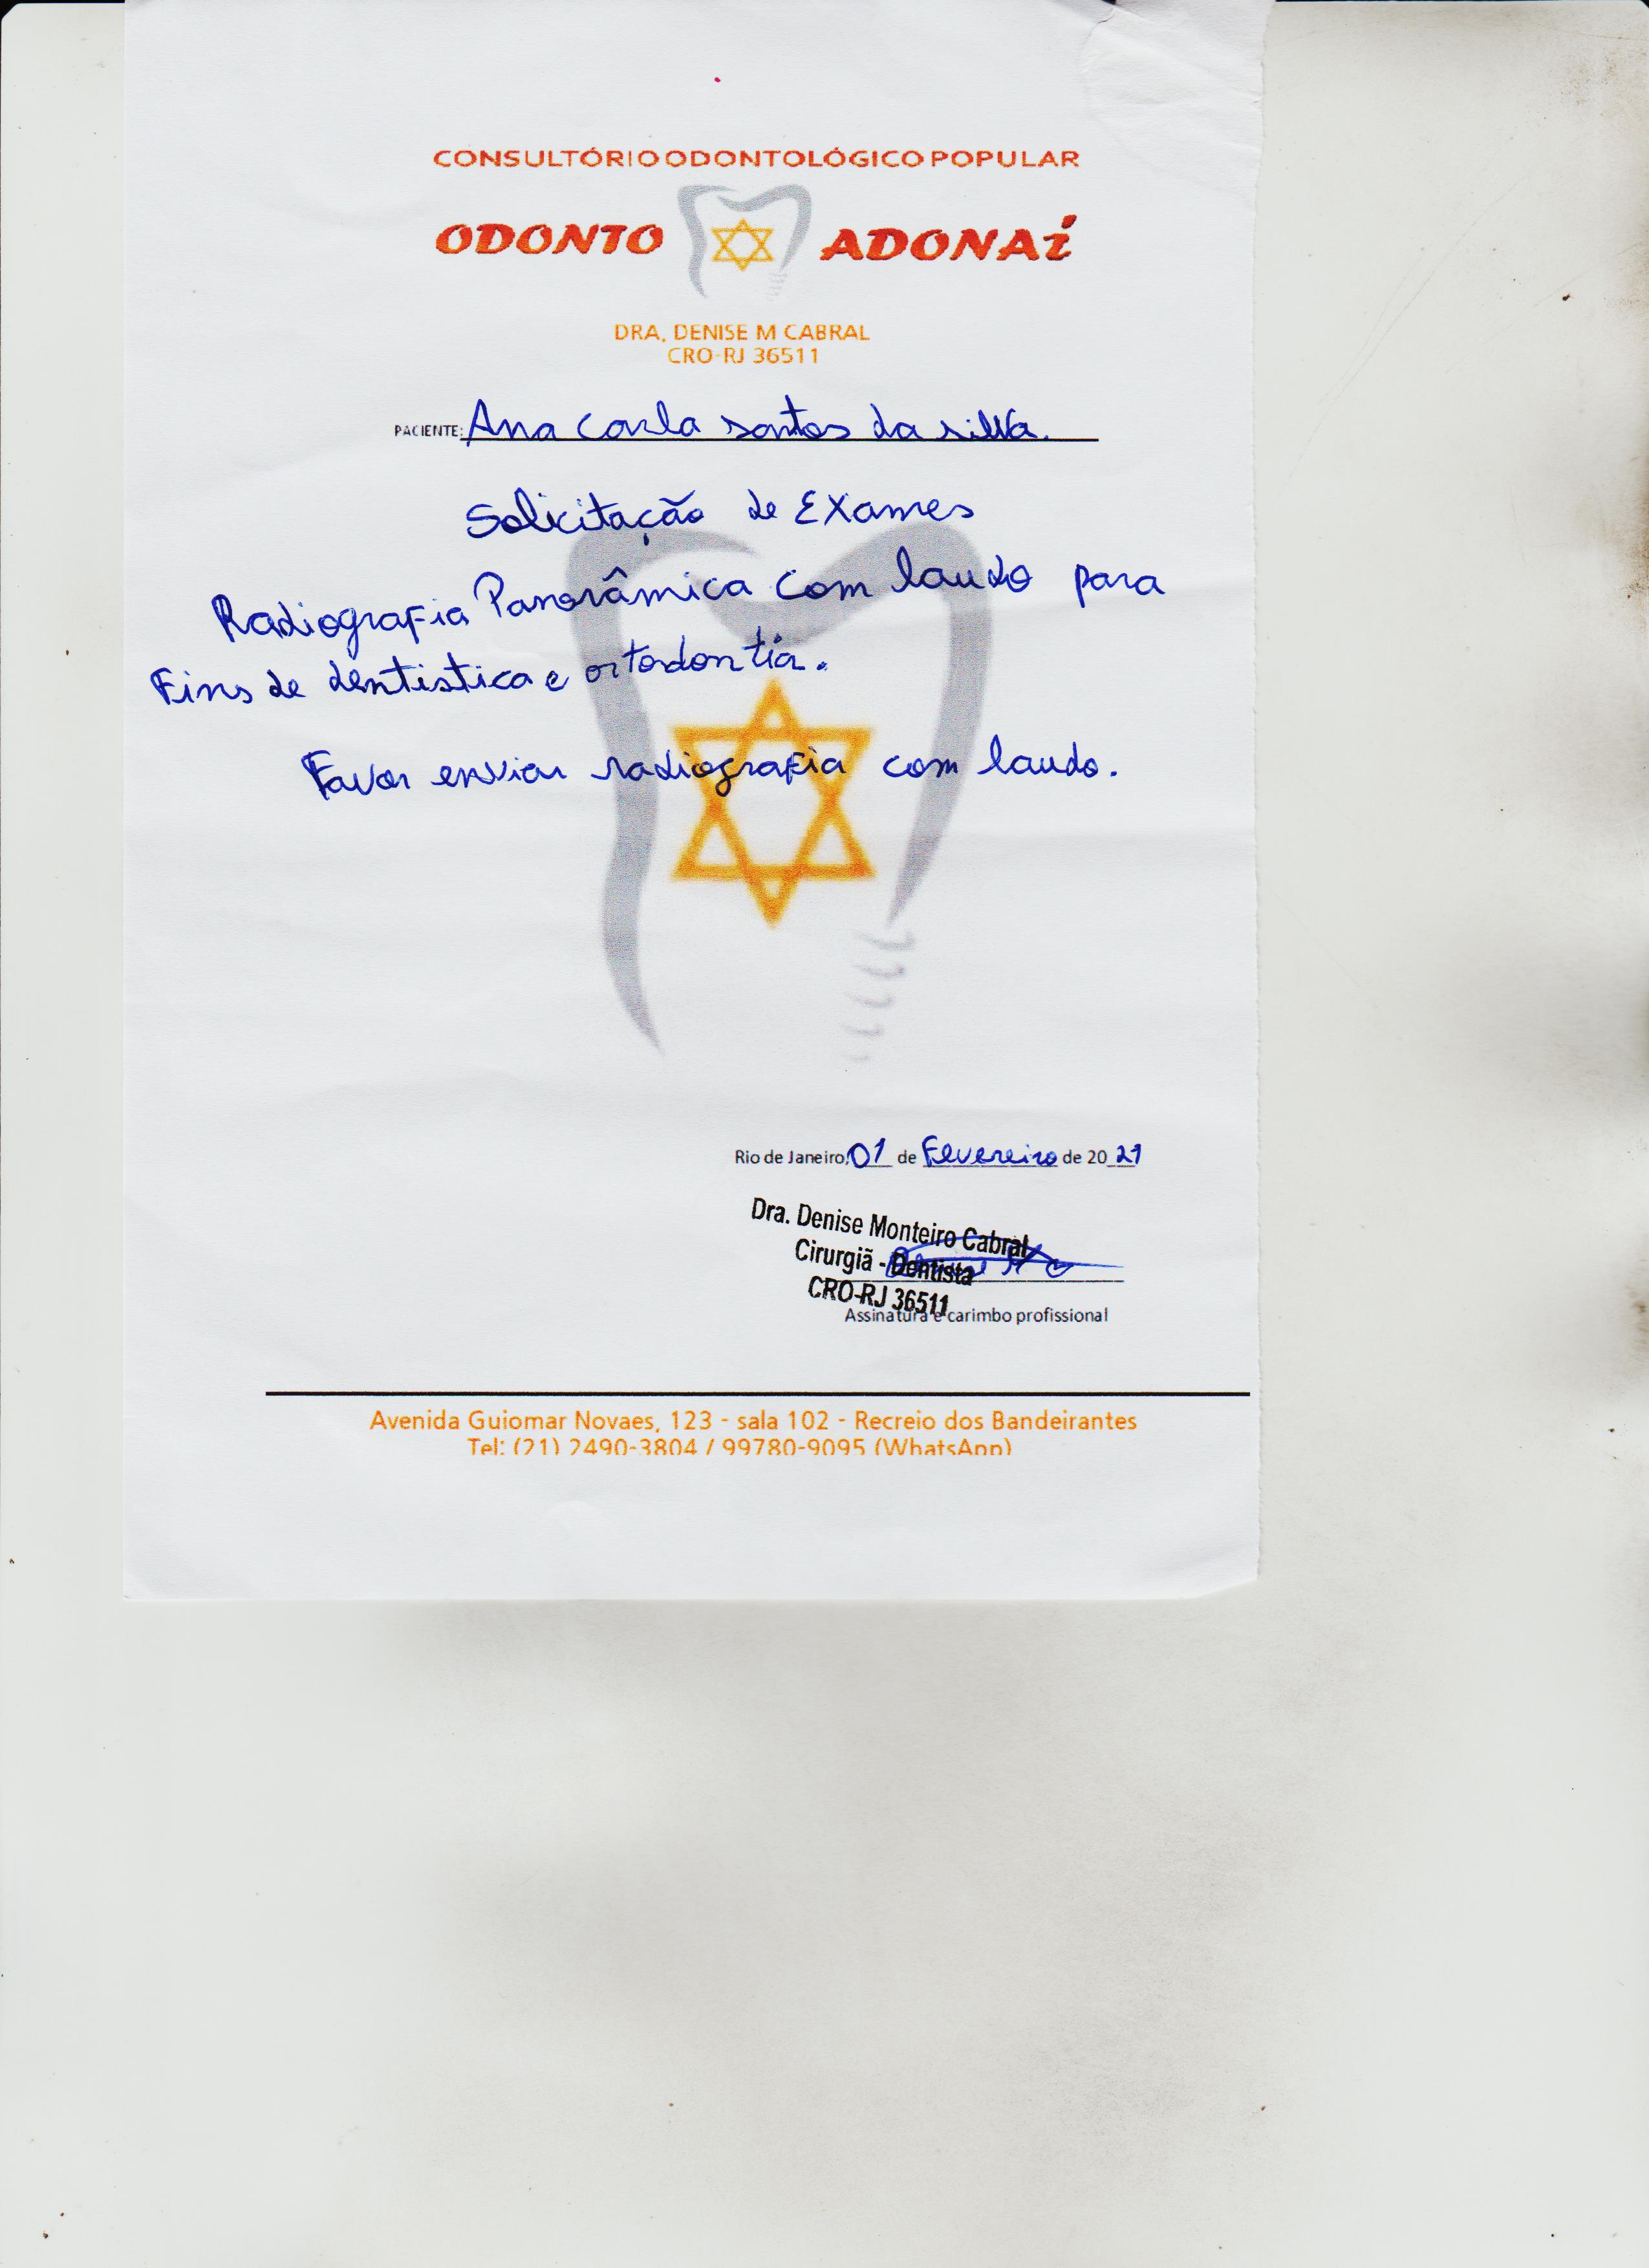 CONSULTÓRIO ODONTOLÓGICO POPULAR
ODONTO ADONAí
DRA. DENISE M CABRAL
CRO-RJ 36511
PACIENTE: Ana Carla santos da silva.
Solicitação de Exames
Radiografia Panorâmica com laudo para
Fins de dentistica e ortodontia.
Favor enviar radiografia com laudo.
Rio de Janeiro, 01 de Fevereiro de 2021
Dra. Denise Monteiro Cabral
Cirurgiã - Dentista
CRO-RJ 36511
Assinatura e carimbo profissional
Avenida Guiomar Novaes, 123 - sala 102 - Recreio dos Bandeirantes
Tel: (21) 2490-3804 / 99780-9095 (WhatsApp)